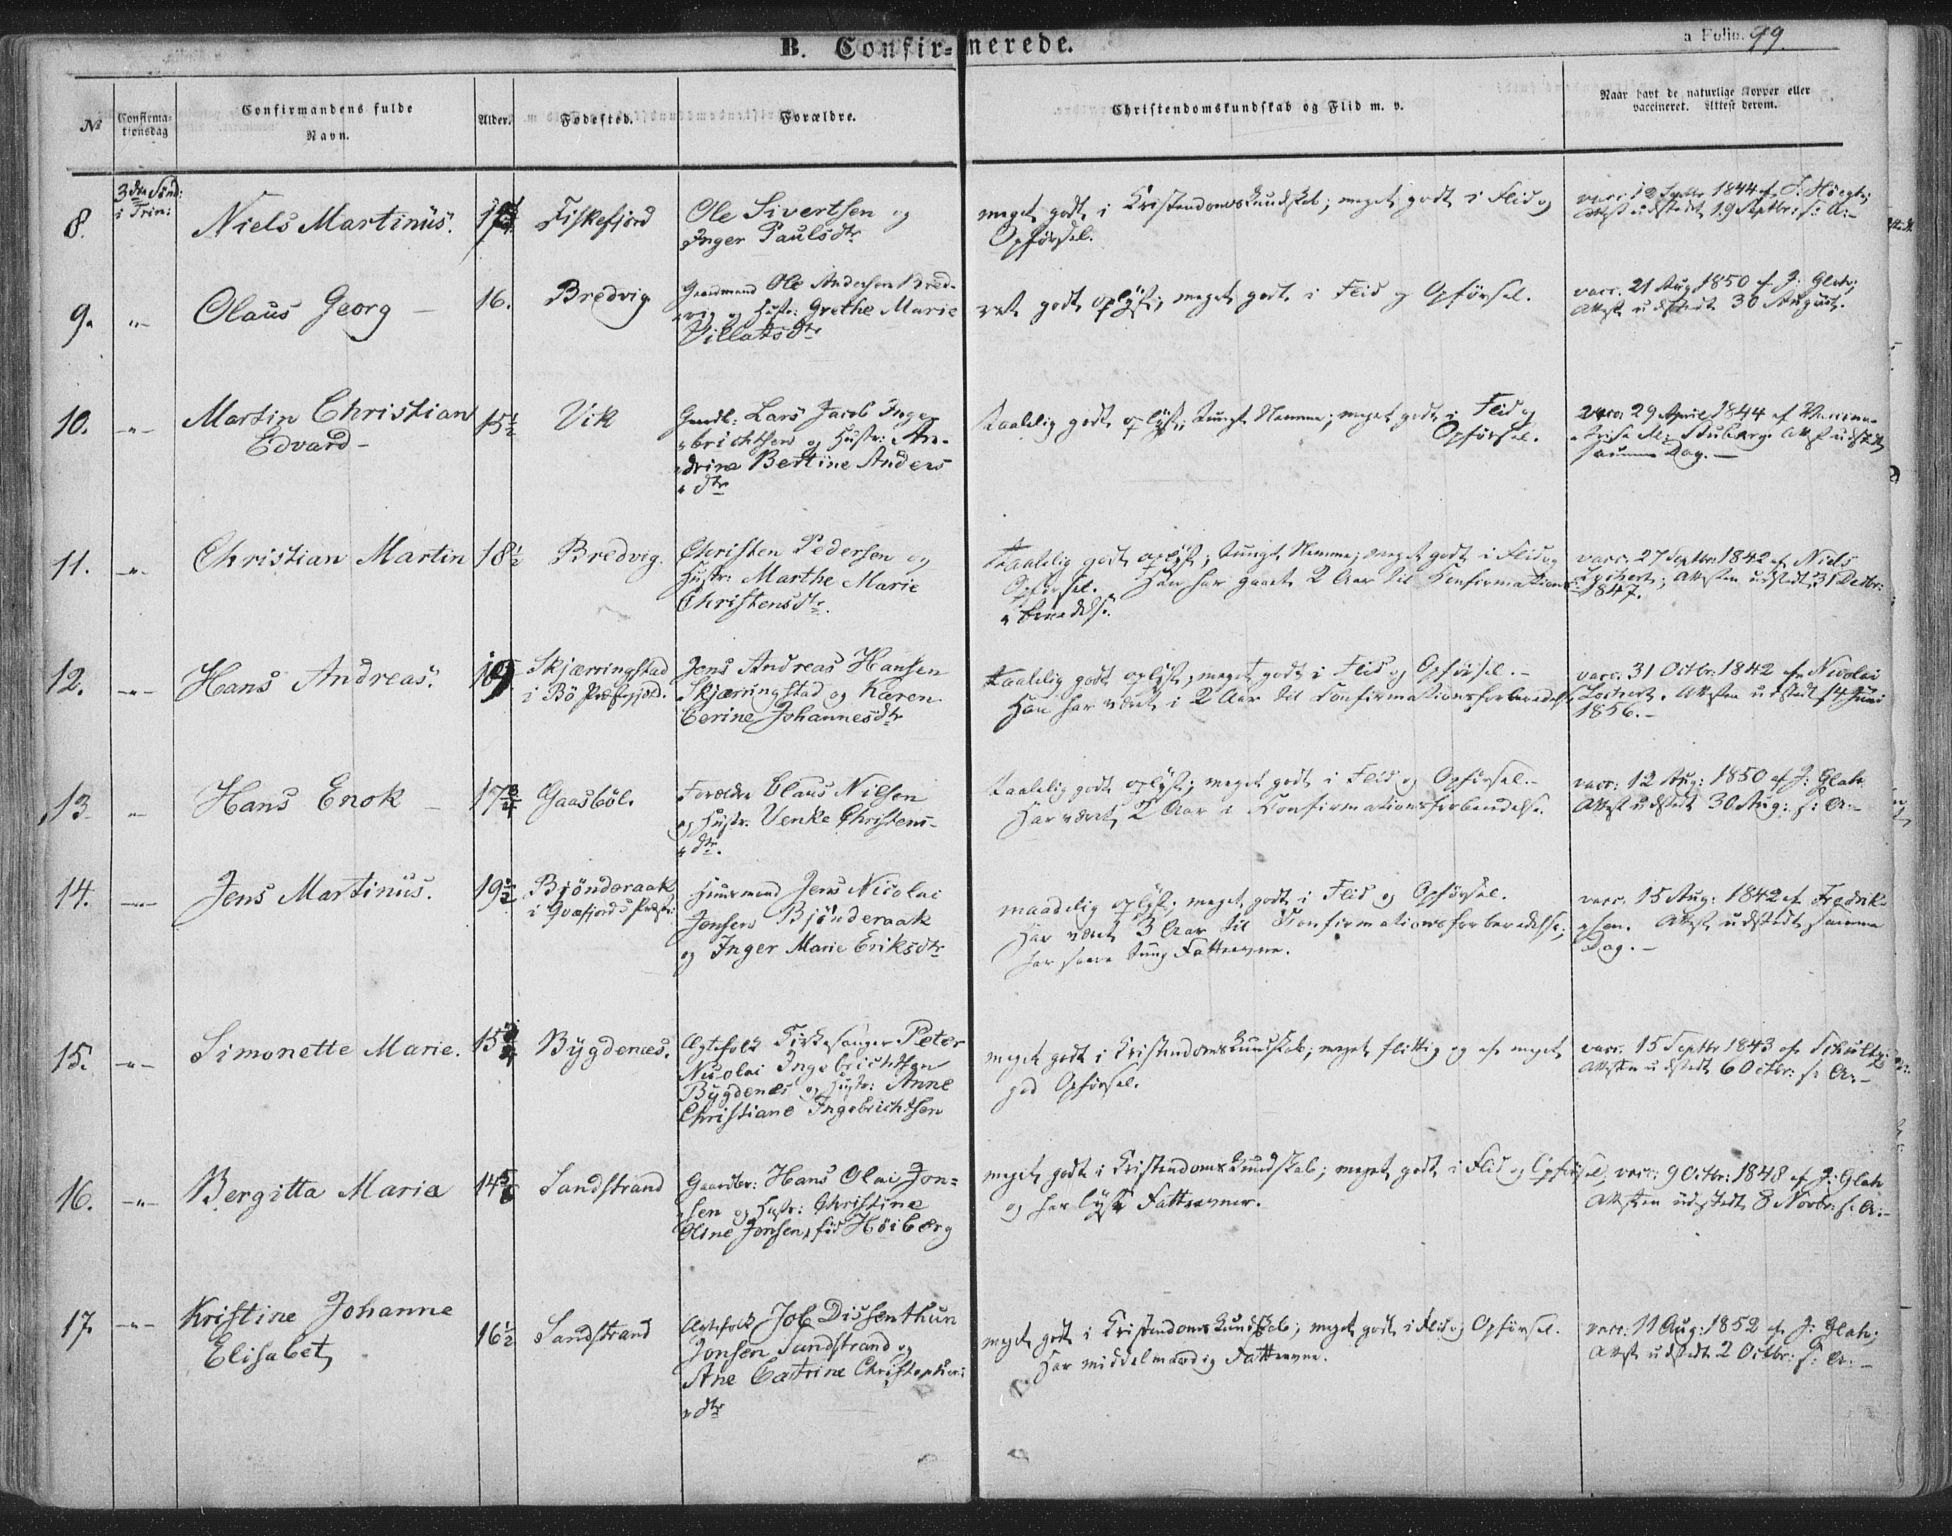 B. Confirmerede.
a Folio. 99.
№
Confirma-
tionsdag
Confirmandens fulde
Navn.
Alder.
Fødested.
Forældre.
Christendomskundskab og Flid m. v.
Naar havt de naturlige Kopper eller
vaccineret. Attest derom.
3die Sönd:
i Trin:
8.
Niels Martinüs.
Fiskefjord
Ole Sivertsen og
Inger Paulsdtr
meget godt i Kristendomskundskab; meget godt i Flid og
Opförsel.
vacc: 12 Septr 1844 af
Attest udstedt 19 Septbr: s: A:-
9. -"-
Olaus Georg -
16.
Bredvig
Gaardmand Ole Andersen Bred-
"vig og Hustr: Grethe Marie
Pillattsdtr
ret godt oplyst; meget godt i Flid og Opförsel.
vacc. 21 Aug 1850 af J: Glatv;
Attest udstedt 30 August.
10. -"-
Martin Christian
Edvard -
15½
Vik
Gaardb: Lars Jacob Inge-
"brichtsen og Hustr: An-
"drine Bertine Anders
"dtr
taalelig godt oplyst, tungt Nemme; meget godt i Flid og
Opförsel.
vacc: 29 April 1844 af
Attest udstedt
samme Dag. -
11. -"-
Christian Martin
18½
Bredvig.
Christen Pedersen og
Hustr: Marthe Marie
Christensdtr.
taalelig godt oplyst; tungt Nemme; meget godt i Flid og
Opförsel. Han har gaaet 2 Aar til Konfirmations-
"beredelse.
vacc. 27 Septbr 1842 af Niels
Lochert; Attesten udstedt 31 Decbr:
1847.
12. -"-
Hans Andreas.
19
Skjærringstad
i Bö Præstegjeld.
Jens Andreas Hansen
Skjærringstad og Karen
Cerine Johannesdtr
taalelig godt oplyst; meget godt i Flid og Opförsel. -
Han har været i 2 Aar til Konfirmationsforberedelse
vacc: 31 Octbr: 1842 af Nicolai
Lochert. Attesten udstedt 14 Juni
1856. -
13. "
Hans Enok -
17¾
Gaasböl.
Forældre Claus Nilsen
og Hustr. Venke Christens-
"dtr.
taalelig godt oplyst; meget godt i Flid og Opförsel. -
Har været 2 Aar i Konfirmationsforberedelse.
vacc: 12 Aug: 1850 af J: Glatv
Attest udstedt 30 Aug: s: A:-
14. -"-
Jens Martinüs.
19½
Bjönderaak
i Qvæfjords Præstg:
Huusmand Jens Nicolai
Jensen Bjönderaak
og Inger Marie Eriksdtr
maadelig oplyst; meget godt i Flid og Opförsel.
Har været 3 Aar til Konfirmationsforberedelse;
har svar tung Fatteevne.
vacc. 15 Aug: 1842 af Fredrik-
"sen. Attest udstedt samme
Dag. -
15. -"-
Simonette Marie.
15¾
Bÿgdenæs.
Ægtefolk Kirkesanger Peter
Nicolai Ingebrichtsen
Bÿgdenæs og Hustr: Anne
Christiane Ingebrichtsen
meget godt i Kristendomskundskab; meget flittig og af meget
god Opförsel.
vacc. 15 Septbr 1843 af Schultz;
Attesten udstedt 6 Octbr: s: A:-
16. -"-
Bergitta Maria
14⅚
Sandstrand
Gaardbr: Hans Olai Jon=
"sen og Hustr: Christine
Oline Jonsen, föd Höiberg
meget godt i Kristendomskundskab; meget godt i Flid og Opförsel,
og har lyse Fatteevner.
vacc: 9 Octbr: 1848 af J: Glatv
Attesten udstedt 8 Novbr: s: A:-
17. -"-
Kristine Johanne
Elisabet
16½
Sandstrand
Ægtefolk Job Dissenthun
Jonsen Sandstrand og
Ane Catrine Christopher:
"dtr
meget godt i Kristendomskundskab; meget godt i Flid og Opförsel.
Har middelmaadig Fatteevne.
vacc: 11 Aug: 1852 af J: Glatv;
Attest udstedt 2 Octbr: s: A: -